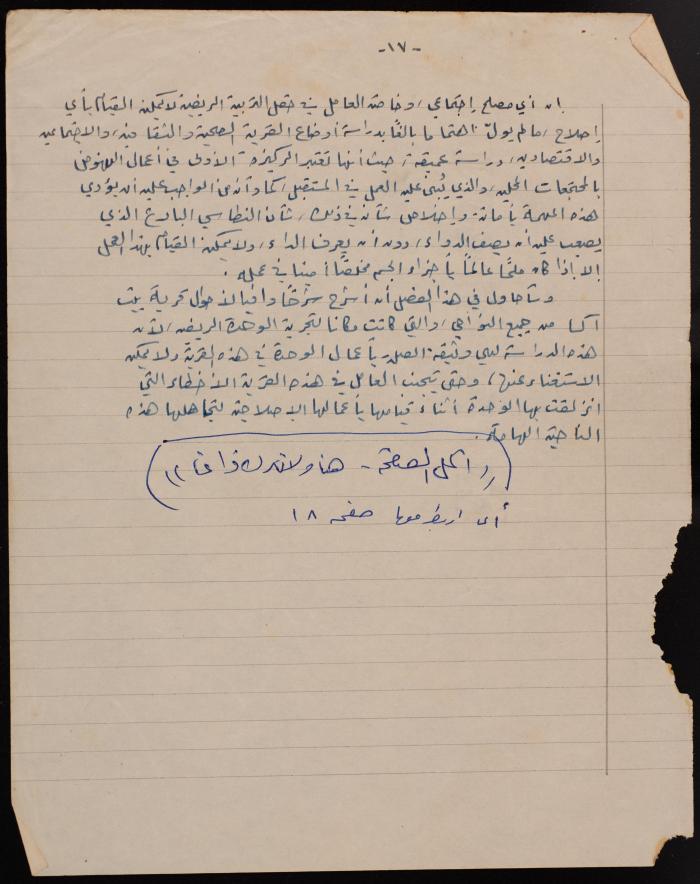 -١٧-
ان أي مصلح إجتماعي، وخاصة العامل في حقل التربية الريفية لا يمكنه القيام بأي
إصلاح، مالم يول اهتماما بالغًا بدراسة أوضاع القرية الصحية والثقافية، والاجتماعية
والاقتصادية، دراسة عميقة، حيث أنها تعتبر الركيزة الأولى في أعمال النهوض
بالمجتمعات المحلية، والذي يُبنى عليه العمل في المستقبل، كما وأنه من الواجب عليه أن يؤدي
هذه المهمة بأمانة وإخلاص شأنه في ذلك، شأن النطاسي البارع الذي
يصعب عليه أن يصف الدواء، دون أن يعرف الداء، ولا يمكنه القيام بهذا العمل
إلا إذا كان ملمًا عالمًا بأجزاء الجسم مخلصًا أمينا في عمله.
وسأحاول في هذا الفصل أن أشرح شرحًا وافيا لأحوال قرية بيت
اكسا من جميع النواحي، والتي كانت مكانا لتجربة الوحدة الريفية، لأن
هذه الدراسة لهي وثيقة الصلة بأعمال الوحدة في هذه القرية ولا يمكن
الاستغناء عنها، وحتى يتجنب العامل في هذه القرية الأخطاء التي
انزلقت بها الوحدة أثناء قيامها بأعمالها الإصلاحية لتجاهلها هذه
الناحية الهامة.
((اكمل الصفحة - هنا ولا تترك فراغا))
أي اربط معها صفحه ١٨